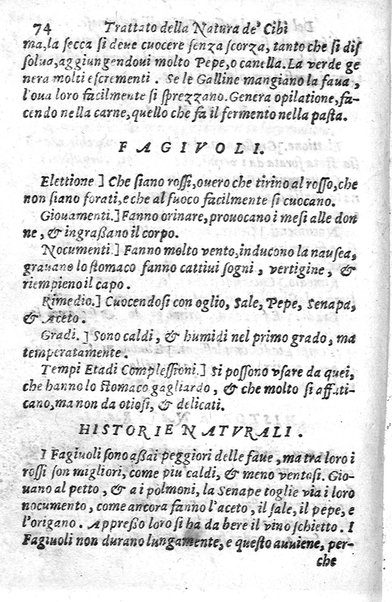 74 Trattato della Natura de' Cibi
ma, la secca si deve cuocere senza scorza, tanto che si dis
solua, aggiungendoui molto Pepe, o canella. La verde ge
nera molti escrementi. Se le Galline mangiano la faua,
l'oua loro facilmente si sprezzano. Genera opilatione, fa-
cendo nella carne, quello che fa il fermento nella pasta.
FAGIVOLI.
Elettione] Che siano rossi, ouero che tirino al rosso, che
non siano forati, e che al fuoco facilmente si cuocano.
Giouamenti.] Fanno orinare, prouocano i mesi alle don
ne, & ingraßano il corpo.
Nocumenti.] Fanno molto vento, inducono la nausea,
grauano lo stomaco fanno cattiui sogni, vertigine, &
riempieno il capo.
Rimedio.] Cuocendosi con oglio, Sale, Pepe, Senapa,
& Aceto.
Gradi.] Sono caldi, & humidi nel primo grado, ma
temperatamente.
Tempi Etadi Complessioni.] Si possono vsare da quei,
che hanno lo stomaco gagliardo, & che molto si affati-
cano, ma non da otiosi, & delicati.
HISTORIE NATVRALI.
I Fagiuoli sono aßai peggiori delle faue, ma tra loro i
rossi son migliori, come piu caldi, & meno ventosi. Gio-
uano al petto, & a i polmoni, la Senape toglie via i loro
nocumento, come ancora fanno l'aceto, il sale, il pepe, e
l'origano. Appreßo loro si ha da bere il vino schietto. I
Fagiuoli non durano lungamente, e questo auuiene, per-
che